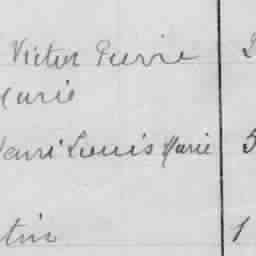 Victor Pierre 2
Marie
Henri Louis Marie 5
tin 1